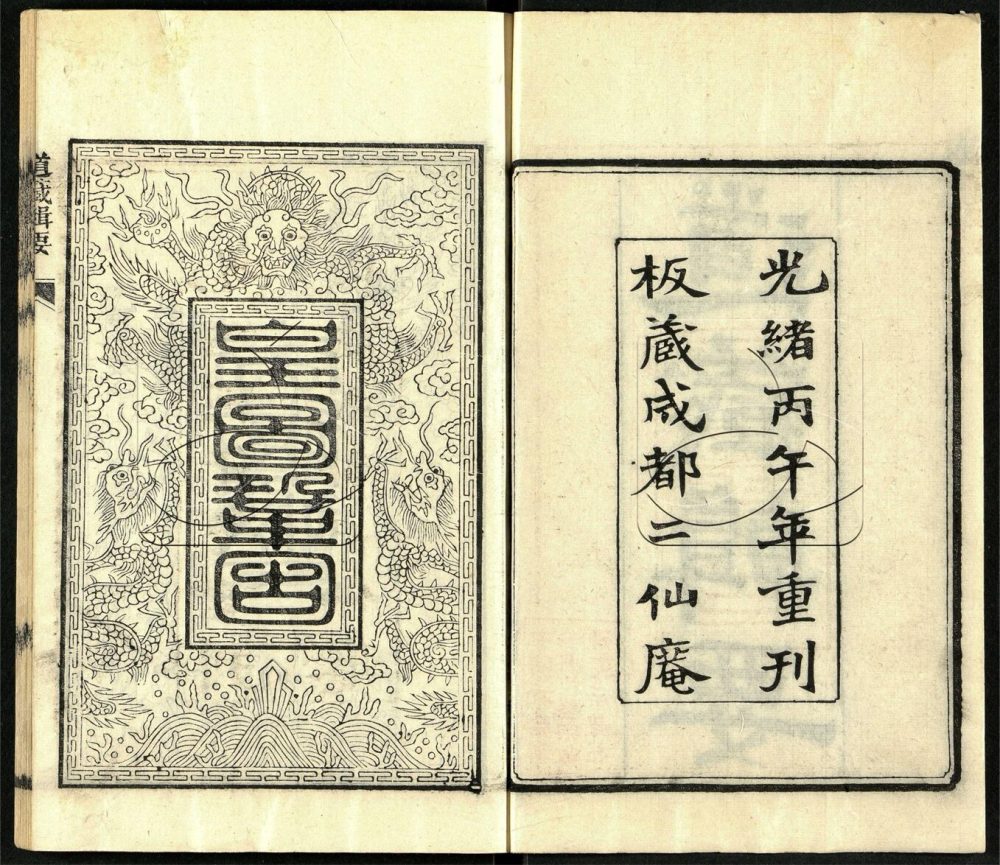 光緒丙午年重刊
板藏成都二仙庵
皇圖鞏固
道藏輯要